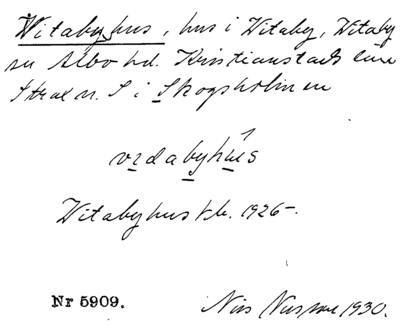 Witabyhus, hus i Witaby, Witaby
sn Albo hd. Kristianstads län
Strax n. S i Skogsholmen
vıdabyhus
Witabyhus t.k. 1926-.
Nr 5909.
Nils 1930.